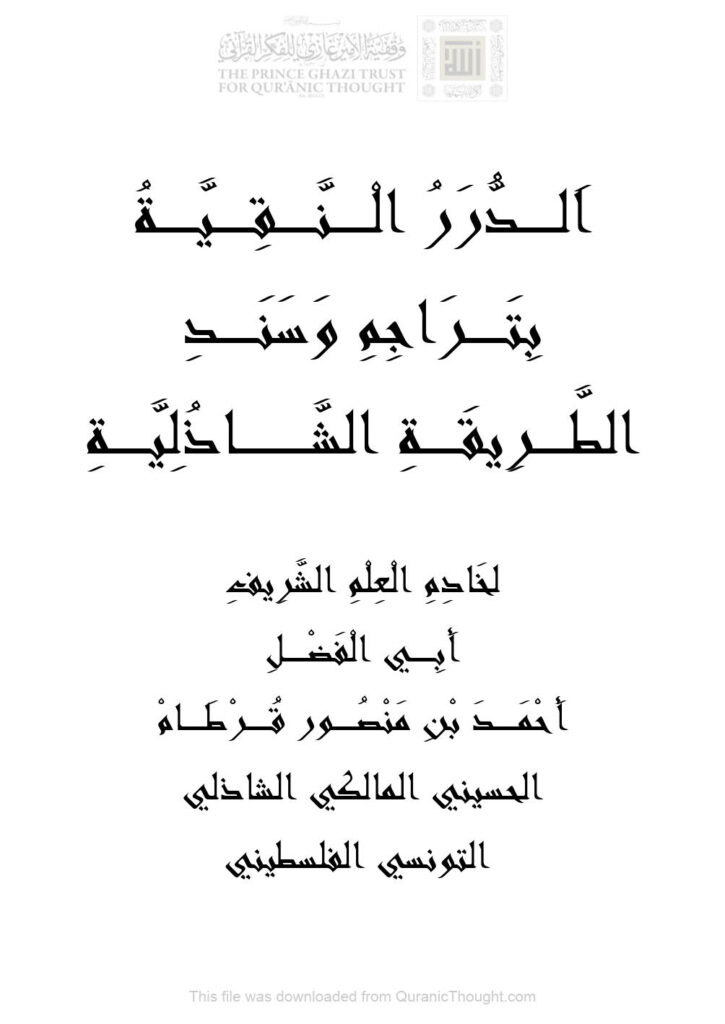 وقفية الأمير غازي للفكر القرآني
THE PRINCE GHAZI TRUST
FOR QUR'ĀNIC THOUGHT
اَلــدُّرَرُ الْــنَّــقِــيَّــةُ
بِتَــرَاجِمِ وَسَنَــدِ
الطَّــرِيقَــةِ الشَّــــاذُلِيَّــةِ
لخَادِمِ الْعِلْمِ الشَّرِيفِ
أَبِــي الْفَضْــلِ
أَحْمَــدَ بْنِ مَنْصُــور قُــرْطَــامْ
الحسيني المالكي الشاذلي
التونسي الفلسطيني
This file was downloaded from QuranicThought.com